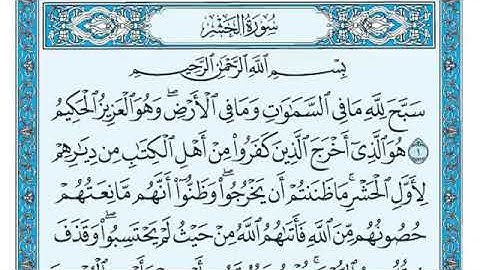 سُورَةُ الحَشْرِ
بِسْمِ اللَّهِ الرَّحْمَٰنِ الرَّحِيمِ
سَبَّحَ لِلَّهِ مَا فِي السَّمَاوَاتِ وَمَا فِي الْأَرْضِ ۖ وَهُوَ الْعَزِيزُ الْحَكِيمُ
۝١ هُوَ الَّذِي أَخْرَجَ الَّذِينَ كَفَرُوا مِنْ أَهْلِ الْكِتَابِ مِن دِيَارِهِمْ
لِأَوَّلِ الْحَشْرِ ۚ مَا ظَنَنتُمْ أَن يَخْرُجُوا ۖ وَظَنُّوا أَنَّهُم مَّانِعَتُهُمْ
حُصُونُهُم مِّنَ اللَّهِ فَأَتَاهُمُ اللَّهُ مِنْ حَيْثُ لَمْ يَحْتَسِبُوا ۖ وَقَذَفَ